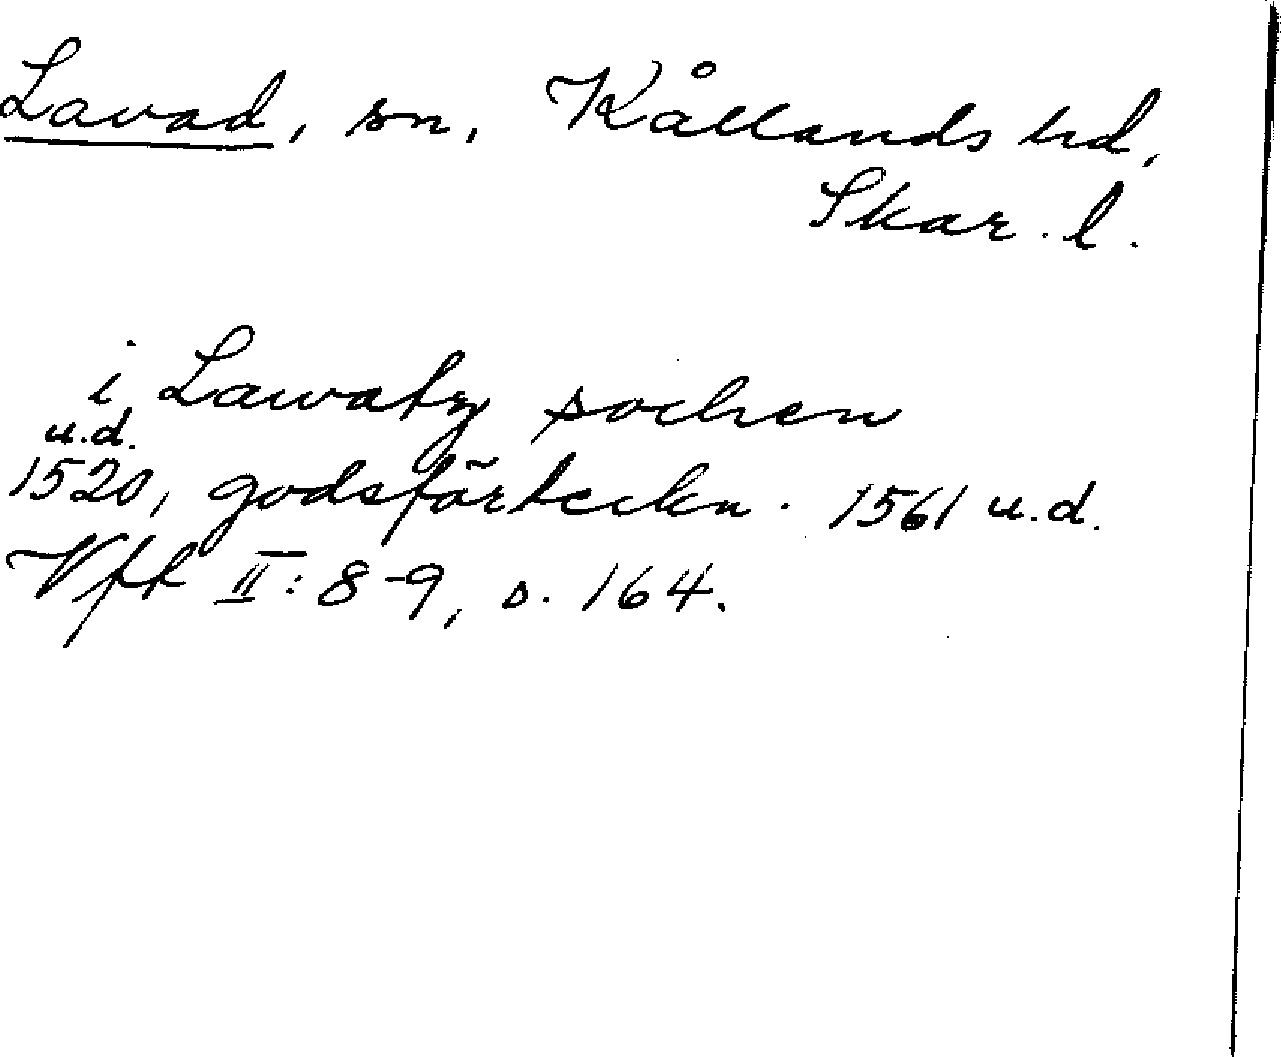 Lavad, sn, Kållands hd,
Skar. l.
i Lawatz sochen
u.d.
1520, godsförteckn. 1561 u.d.
Vfk II: 8-9, s. 164.